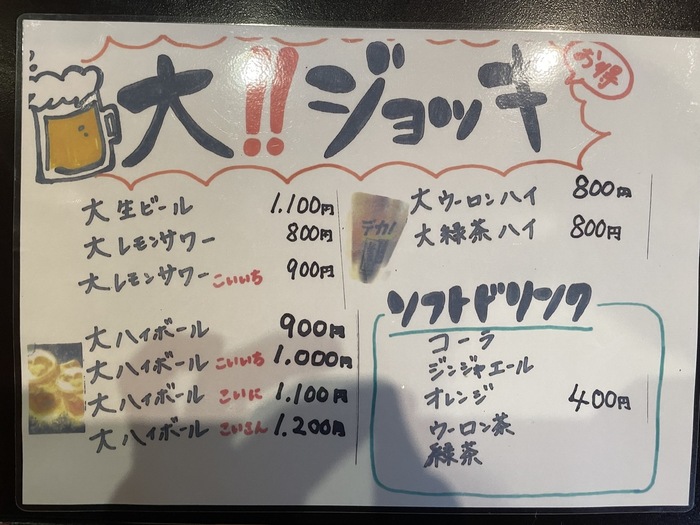 大!!ジョッキ
お得
大生ビール 1.100円
大レモンサワー 800円
大レモンサワー こいいち 900円
大ハイボール 900円
大ハイボール こいいち 1.000円
大ハイボール こいに 1.100円
大ハイボール こいさん 1.200円
デカ!
大ウーロンハイ 800円
大緑茶ハイ 800円
ソフトドリンク
コーラ
ジンジャエール
オレンジ 400円
ウーロン茶
緑茶